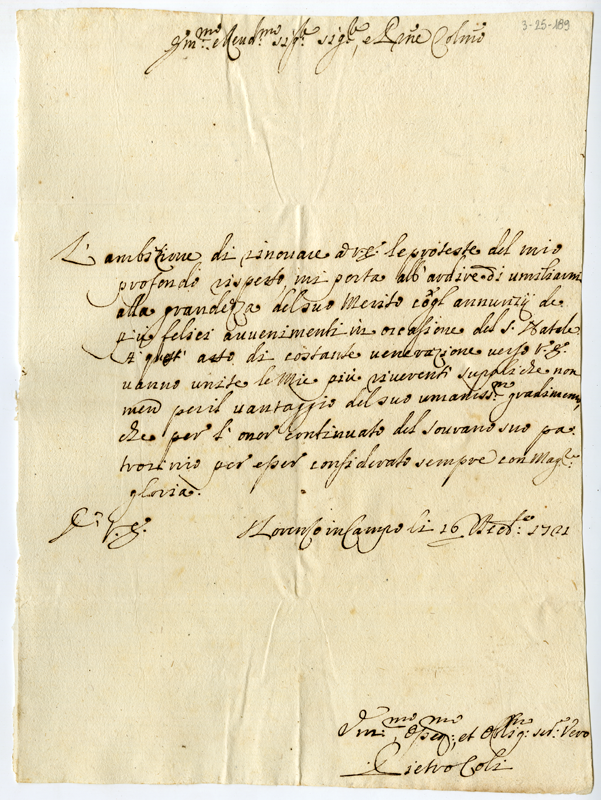 3-25-189
Jll.mo e Reud.mo Sig.r Sig.r, e P͞rne Colmo
L'ambizione di rinouare a V.E. le proteste del mio
profondo rispetto mi porta all'ardire di umiliarmi
alla grandezza del suo Merito cogl'annunzij de
più felici auuenimenti in occasione del S. Natale
A quest'atto di costante uenerazione uerso V.E.
uanno unite le Mie più riuerenti suppliche non
meno per il uantaggio del suo umaniss.mo gradimento,
che per l'onor continuato del sourano suo pa
trocinio per esser considerato sempre con Magg.r
gloria.
Di V.E. S. Lorenzo in Campo li 16 Decb.e 1721
Um.mo, Deuot.mo, et Oblig.mo ser.e Vero
Pietro Coli